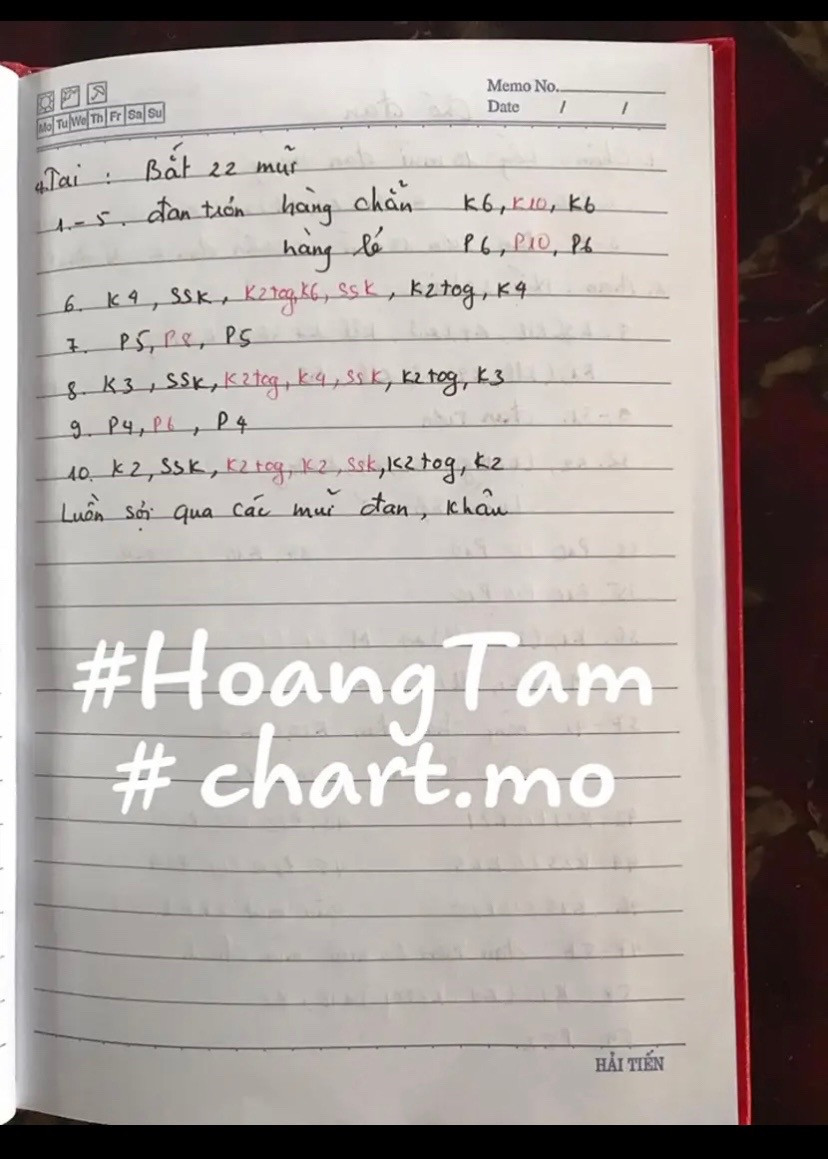 Memo No.
Mo Tu We Th Fr Sa Su
Date / /
4. Tai : Bắt 22 mũi
1.-5. đan trơn hàng chẵn K6, K10, K6
hàng lẻ P6, P10, P6
6. K4, SSK, K2tog, K6, SSK, K2tog, K4
7. P5, P8, P5
8. K3, SSK, K2tog, K4, SSK, K2tog, K3
9. P4, P6, P4
10. K2, SSK, K2tog, K2, SSK, K2tog, K2
Luồn sợi qua các mũi đan, khâu
#HoangTam
# chart.mo
HẢI TIẾN